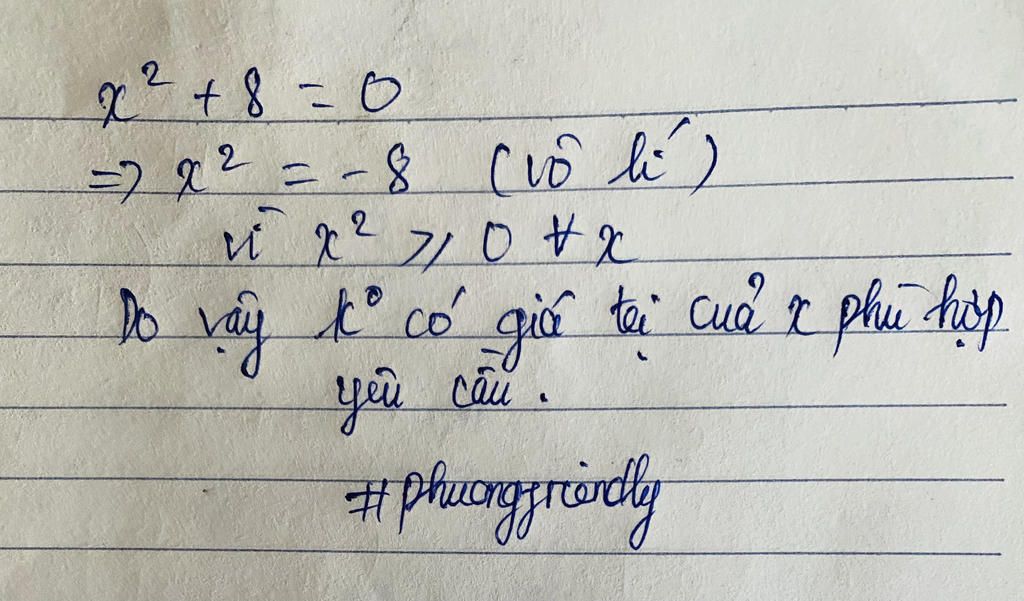 x² + 8 = 0
=> x² = -8 (vô lí)
vì x² ≥ 0 ∀ x
Do vậy k° có giá trị của x phù hợp
yêu cầu.
#phuongfriendly